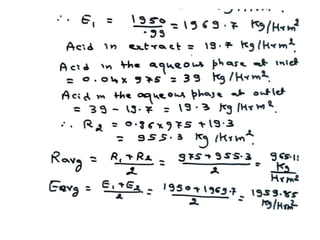 ∴ E₁ = 1950/.99 = 1969.7 Kg/Hrm²
Acid in extract = 19.7 Kg/Hrm².
Acid in the aqueous phase at inlet
= 0.04 x 975 = 39 Kg/Hrm².
Acid in the aqueous phase at outlet
= 39 - 19.7 = 19.3 Kg/Hrm².
∴ R₂ = 0.96 x 975 + 19.3
= 955.3 Kg/Hrm².
Ravg = (R₁+R₂)/2 = (975+955.3)/2 = 965.1 Kg/Hrm²
Eavg = (E₁+E₂)/2 = (1950+1969.7)/2 = 1959.85 Kg/Hrm²